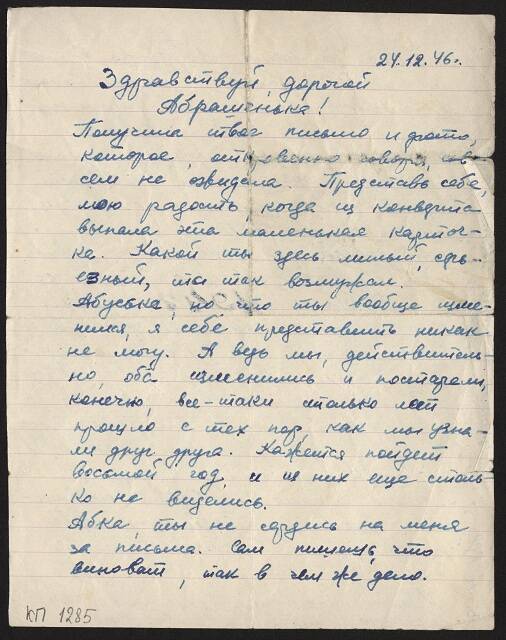 24.12.46г.
Здравствуй, дорогой
Абрашенька!
Получила твое письмо и фото,
которое, откровенно говоря, сов-
сем не ожидала. Представь себе,
мою радость, когда из конверта
выпала эта маленькая карточ-
ка. Какой ты здесь милый, серь-
езный, ты так возмужал.
Абуська, но что ты вообще изме-
нился, я себе представить никак
не могу. А ведь мы, действитель-
но, оба изменились и постарели,
конечно, все-таки столько лет
прошло с тех пор, как мы узна-
ли друг друга. Кажется пойдет
восьмой год, и из них еще столь-
ко не виделись.
Абка, ты не сердись на меня
за письма. Сам пишешь, что
виноват, так в чем же дело.
КП 1285